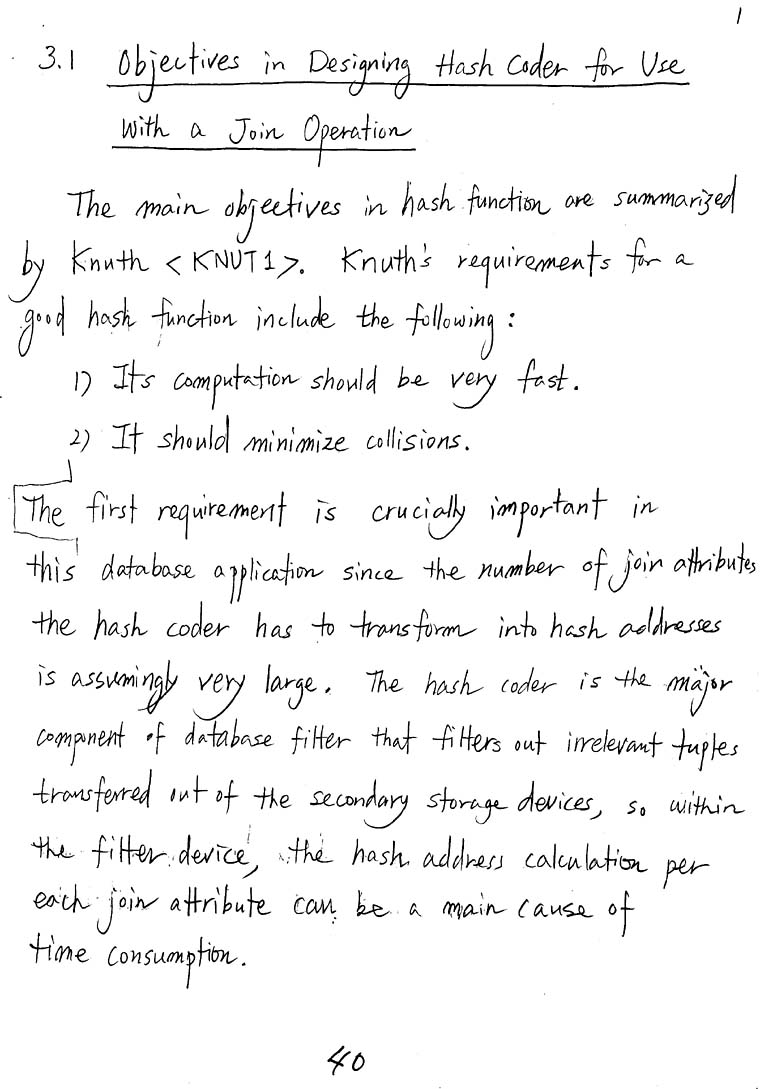 1
3.1 Objectives in Designing Hash Coder for Use
With a Join Operation
The main objectives in hash function are summarized
by Knuth <KNUT1>. Knuth's requirements for a
good hash function include the following:
1) Its computation should be very fast.
2) It should minimize collisions.
The first requirement is crucially important in
this database application since the number of join attributes
the hash coder has to transform into hash addresses
is assumingly very large. The hash coder is the major
component of database filter that filters out irrelevant tuples
transferred out of the secondary storage devices, so within
the filter device, the hash address calculation per
each join attribute can be a main cause of
time consumption.
40